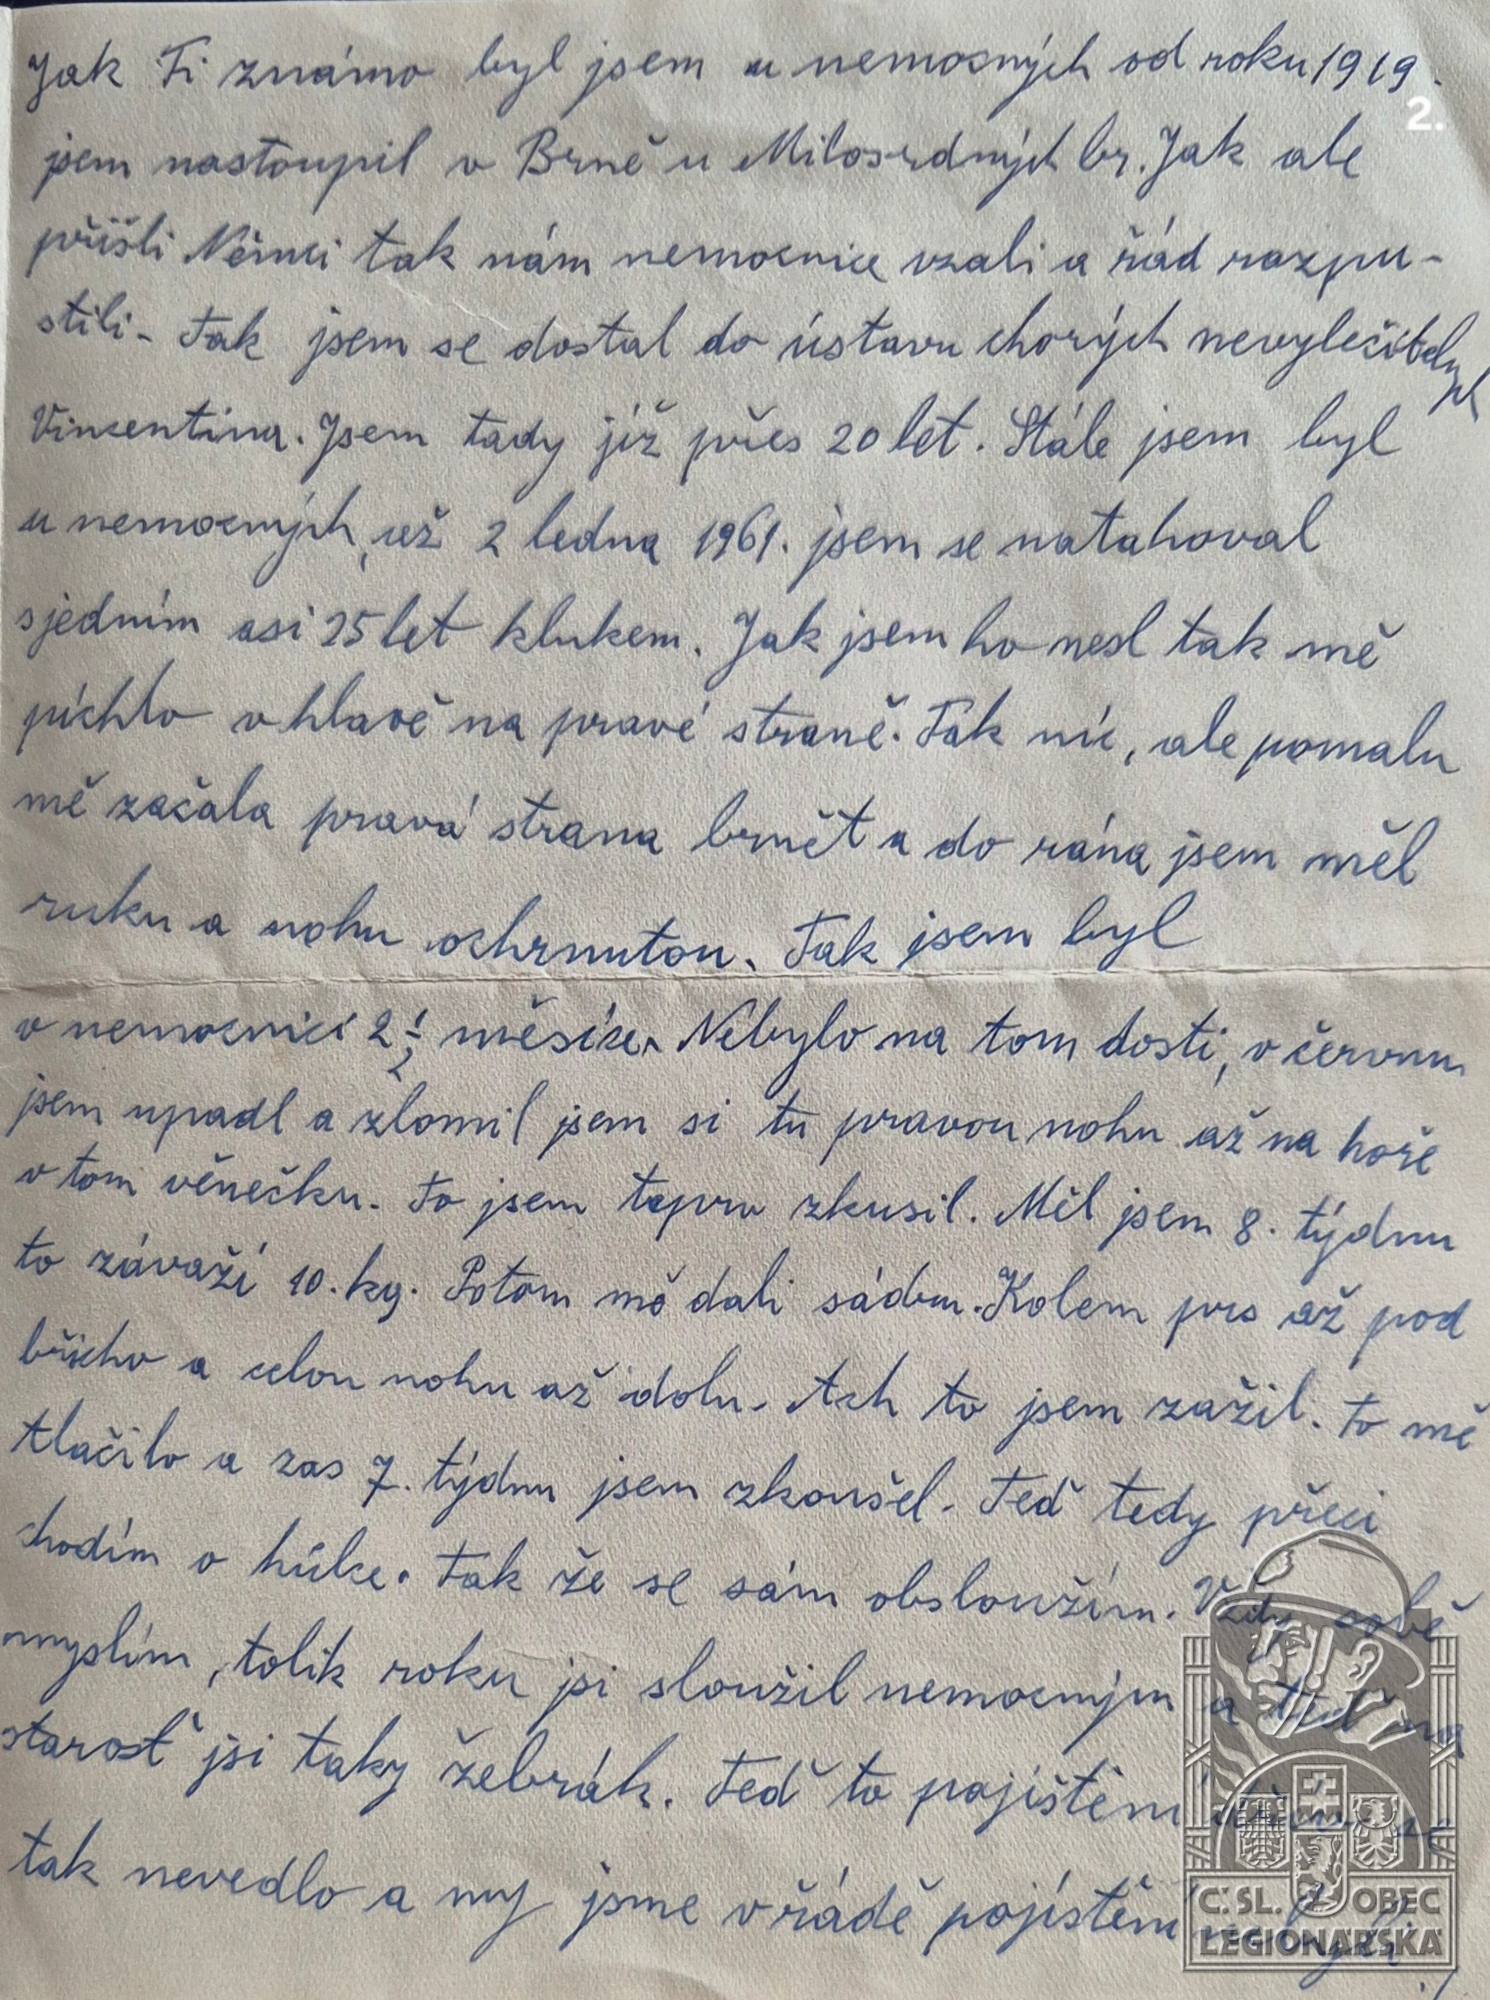 Jak Ti známo byl jsem u nemocných od roku 1919.
2.
jsem nastoupil v Brně u Milosrdných br. Jak ale
přišli Němci tak nám nemocnice vzali a řád razpu-
stili. Tak jsem se dostal do ústavu chorých nevyléčitelných
Vincentina. Jsem tady již přes 20 let. Stále jsem byl
u nemocných, až 2 ledna 1961. jsem se natahoval
s jedním asi 25 let klukem. Jak jsem ho nesl tak mě
píchlo v hlavě na pravé straně. Tak nic, ale pomalu
mě začala pravá strana brnět a do rána jsem měl
ruku a nohu ochrnutou. Tak jsem byl
v nemocnici 2 1/2 měsíce. Nebylo na tom dosti, v červnu
jsem upadl a zlomil jsem si tu pravou nohu až na hoře
v tom věnečku. To jsem teprv zkusil. Měl jsem 8. týdnu
to závaží 10. kg. Potom mě dali sádru. Kolem prs až pod
břicho a celou nohu až dolu. Ach to jsem zažil. To mě
tlačilo a zas 7. týdnu jsem zkoušel. Teď tedy přeci
chodím o hůlce. Tak že se sám obsloužím. Vždy sobě
myslím, tolik roku jsi sloužil nemocným a teď na
starosť jsi taky žebrák. Teď to pojištění se
tak nevedlo a my jsme v řádě pojištěni
Č.SL. OBEC
LEGIONÁŘSKÁ